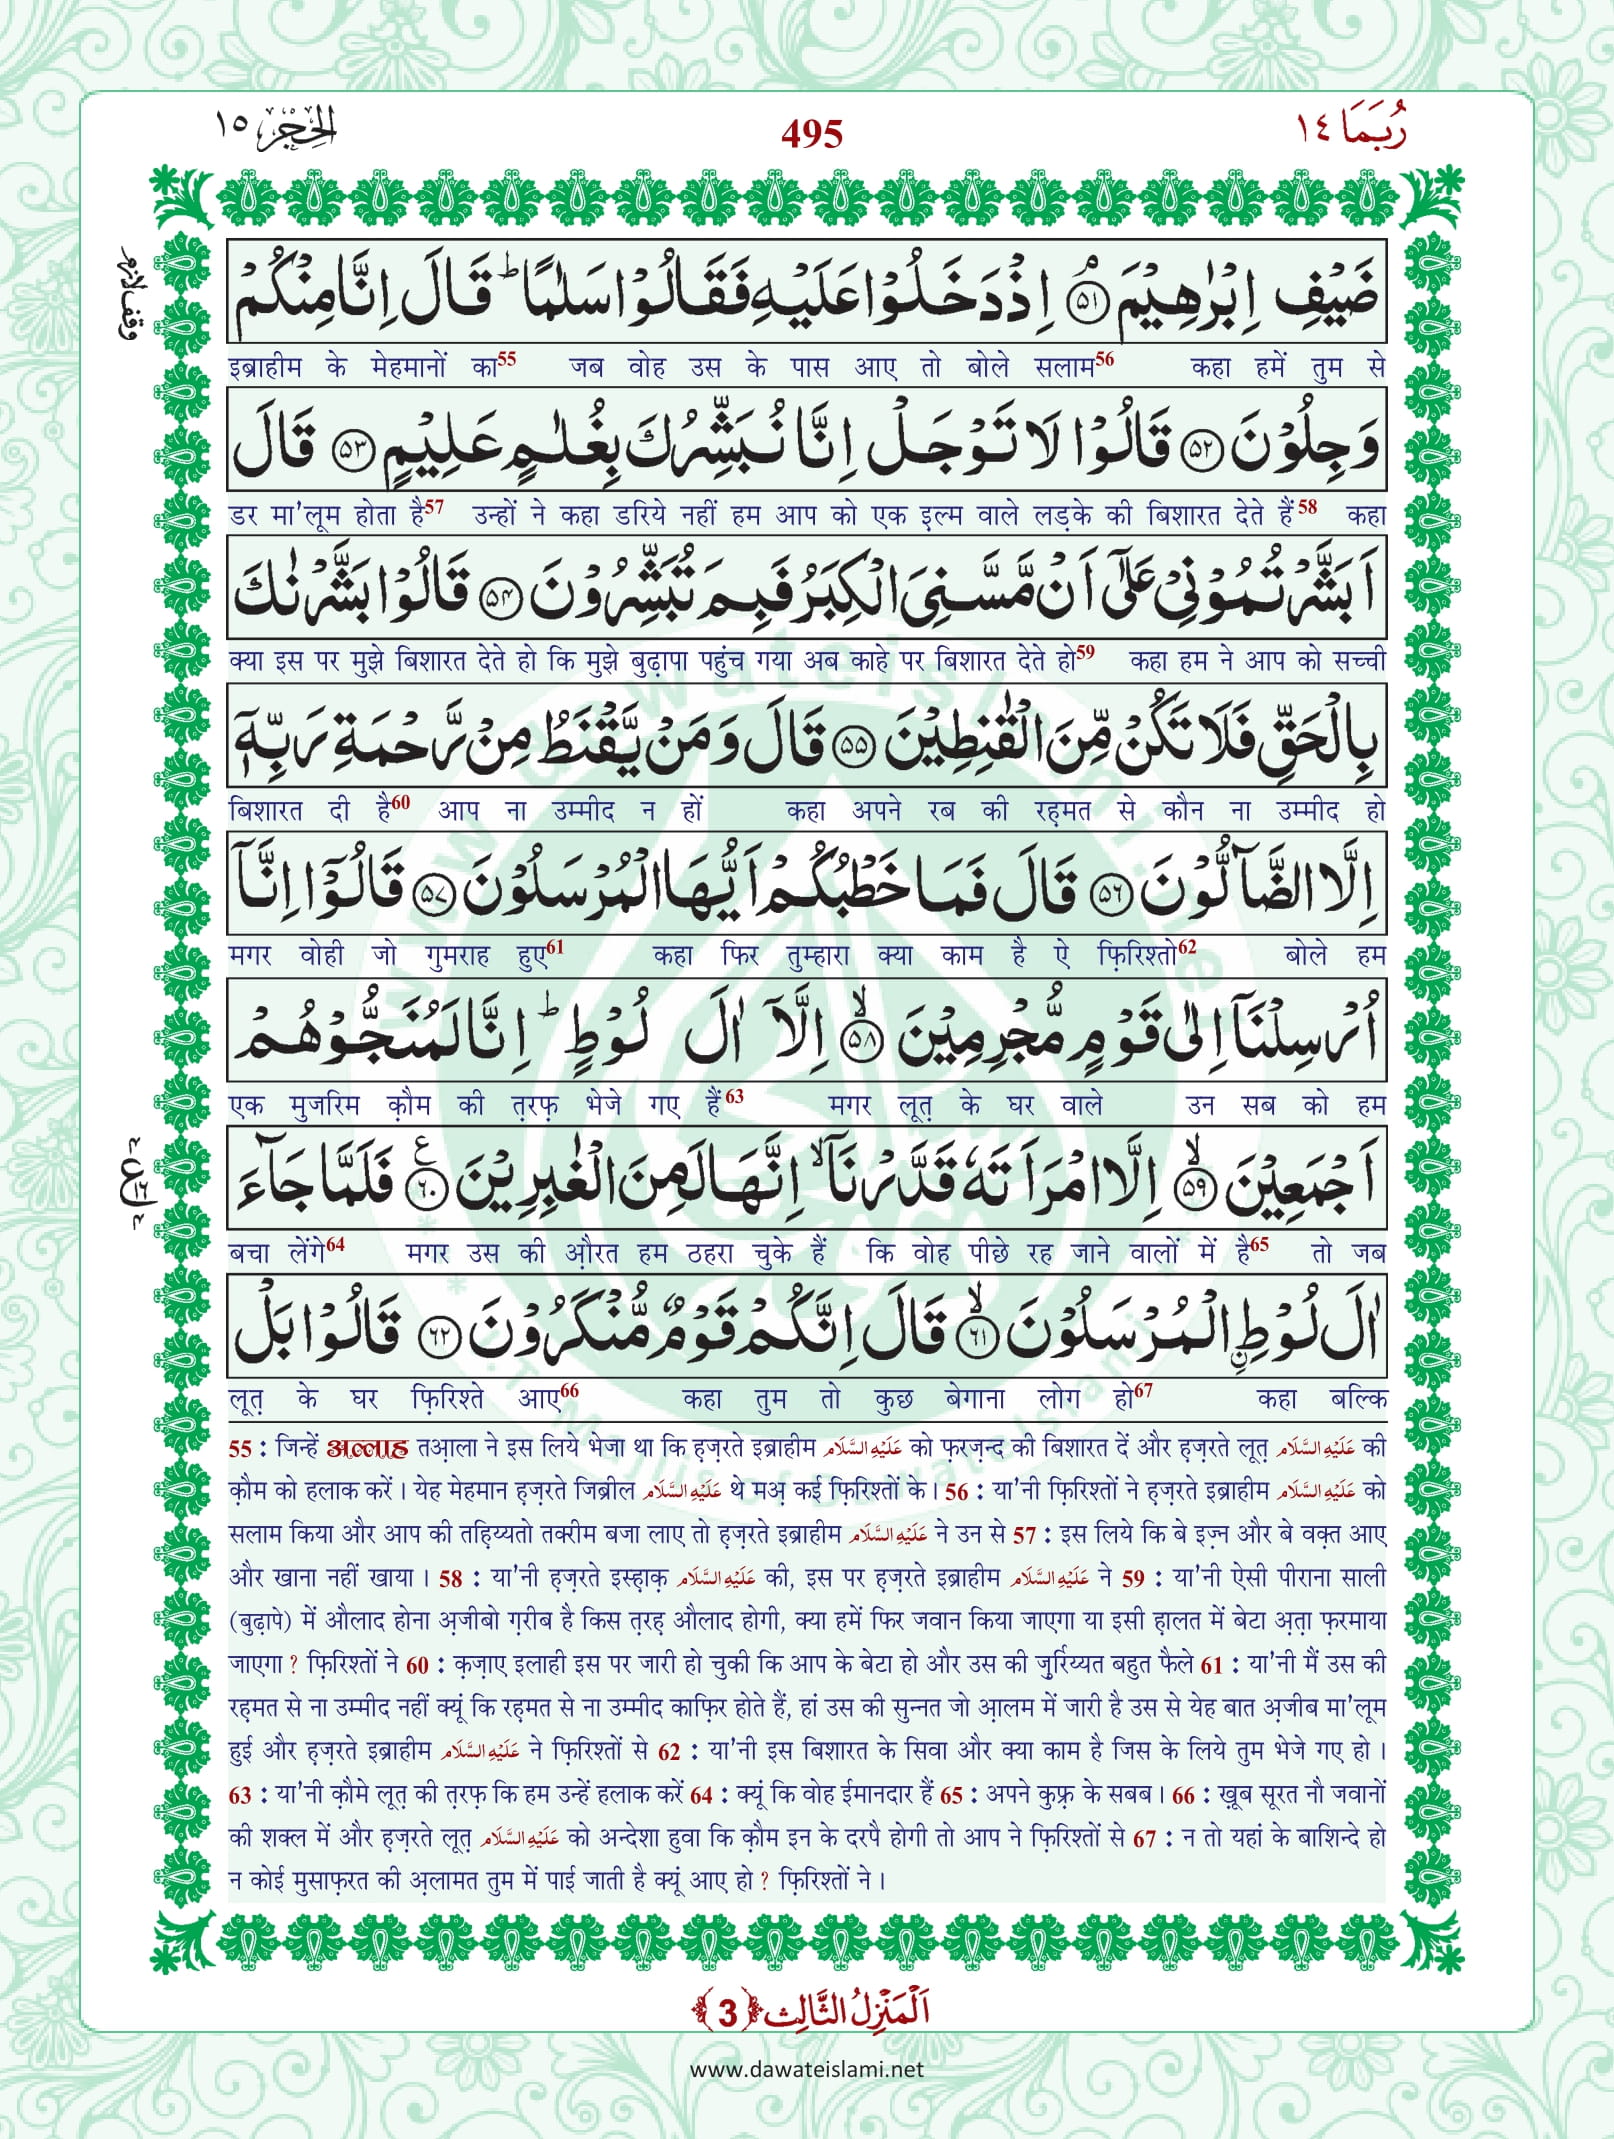 رُبَمَا ١٤
495
الحِجْر ١٥
ضَيْفِ اِبْرٰهِيْمَ ۘ ﴿۵۱﴾ اِذْ دَخَلُوْا عَلَيْهِ فَقَالُوْا سَلٰمًا ؕ قَالَ اِنَّا مِنْكُمْ
وقف لازم
इब्राहीम के मेहमानों का55 जब वोह उस के पास आए तो बोले सलाम56 कहा हमें तुम से
وَجِلُوْنَ ﴿۵۲﴾ قَالُوْا لَا تَوْجَلْ اِنَّا نُبَشِّرُكَ بِغُلٰمٍ عَلِيْمٍ ﴿۵۳﴾ قَالَ
डर मा'लूम होता है57 उन्हों ने कहा डरिये नहीं हम आप को एक इल्म वाले लड़के की बिशारत देते हैं58 कहा
اَبَشَّرْتُمُوْنِيْ عَلٰٓى اَنْ مَّسَّنِيَ الْكِبَرُ فَبِمَ تُبَشِّرُوْنَ ﴿۵۴﴾ قَالُوْا بَشَّرْنٰكَ
क्या इस पर मुझे बिशारत देते हो कि मुझे बुढ़ापा पहुंच गया अब काहे पर बिशारत देते हो59 कहा हम ने आप को सच्ची
بِالْحَقِّ فَلَا تَكُنْ مِّنَ الْقٰنِطِيْنَ ﴿۵۵﴾ قَالَ وَ مَنْ يَّقْنَطُ مِنْ رَّحْمَةِ رَبِّهٖٓ
बिशारत दी है60 आप ना उम्मीद न हों कहा अपने रब की रह़मत से कौन ना उम्मीद हो
اِلَّا الضَّآلُّوْنَ ﴿۵۶﴾ قَالَ فَمَا خَطْبُكُمْ اَيُّهَا الْمُرْسَلُوْنَ ﴿۵۷﴾ قَالُوْٓا اِنَّآ
मगर वोही जो गुमराह हुए61 कहा फिर तुम्हारा क्या काम है ऐ फ़िरिश्तो62 बोले हम
اُرْسِلْنَآ اِلٰى قَوْمٍ مُّجْرِمِيْنَ ۙ﴿۵۸﴾ اِلَّآ اٰلَ لُوْطٍ ؕ اِنَّا لَمُنَجُّوْهُمْ
एक मुजरिम क़ौम की त़रफ़ भेजे गए हैं63 मगर लूत़ के घर वाले उन सब को हम
اَجْمَعِيْنَ ۙ﴿۵۹﴾ اِلَّا امْرَاَتَهٗ قَدَّرْنَآ ۙ اِنَّهَا لَمِنَ الْغٰبِرِيْنَ ﴿۶۰﴾ ع فَلَمَّا جَآءَ
बचा लेंगे64 मगर उस की औ़रत हम ठहरा चुके हैं कि वोह पीछे रह जाने वालों में है65 तो जब
اٰلَ لُوْطِۨ الْمُرْسَلُوْنَ ۙ﴿۶۱﴾ قَالَ اِنَّكُمْ قَوْمٌ مُّنْكَرُوْنَ ﴿۶۲﴾ قَالُوْا بَلْ
लूत़ के घर फ़िरिश्ते आए66 कहा तुम तो कुछ बेगाना लोग हो67 कहा बल्कि
55 : जिन्हें अल्लाह तआ़ला ने इस लिये भेजा था कि ह़ज़रते इब्राहीम عَلَيْهِ السَّلَام को फ़रज़न्द की बिशारत दें और ह़ज़रते लूत़ عَلَيْهِ السَّلَام की
क़ौम को हलाक करें। येह मेहमान ह़ज़रते जिब्रील عَلَيْهِ السَّلَام थे मअ़ कई फ़िरिश्तों के। 56 : या'नी फ़िरिश्तों ने ह़ज़रते इब्राहीम عَلَيْهِ السَّلَام को
सलाम किया और आप की तहि़य्यतो तक्रीम बजा लाए तो ह़ज़रते इब्राहीम عَلَيْهِ السَّلَام ने उन से 57 : इस लिये कि बे इज़्न और बे वक़्त आए
और खाना नहीं खाया। 58 : या'नी ह़ज़रते इस्ह़ाक़ عَلَيْهِ السَّلَام की, इस पर ह़ज़रते इब्राहीम عَلَيْهِ السَّلَام ने 59 : या'नी ऐसी पीराना साली
(बुढ़ापे) में औलाद होना अ़जीबो ग़रीब है किस त़रह़ औलाद होगी, क्या हमें फिर जवान किया जाएगा या इसी ह़ालत में बेटा अ़त़ा फ़रमाया
जाएगा ? फ़िरिश्तों ने 60 : क़ज़ाए इलाही इस पर जारी हो चुकी कि आप के बेटा हो और उस की ज़ुर्रिय्यत बहुत फैले 61 : या'नी मैं उस की
रह़मत से ना उम्मीद नहीं क्यूं कि रह़मत से ना उम्मीद काफ़िर होते हैं, हां उस की सुन्नत जो आ़लम में जारी है उस से येह बात अ़जीब मा'लूम
हुई और ह़ज़रते इब्राहीम عَلَيْهِ السَّلَام ने फ़िरिश्तों से 62 : या'नी इस बिशारत के सिवा और क्या काम है जिस के लिये तुम भेजे गए हो।
63 : या'नी क़ौमे लूत़ की त़रफ़ कि हम उन्हें हलाक करें 64 : क्यूं कि वोह ईमानदार हैं 65 : अपने कुफ़्र के सबब। 66 : ख़ूब सूरत नौ जवानों
की शक्ल में और ह़ज़रते लूत़ عَلَيْهِ السَّلَام को अन्देशा हुवा कि क़ौम इन के दरपै होगी तो आप ने फ़िरिश्तों से 67 : न तो यहां के बाशिन्दे हो
न कोई मुसाफ़रत की अ़लामत तुम में पाई जाती है क्यूं आए हो ? फ़िरिश्तों ने।
اَلْمَنْزِلُ الثَّالِث ﴿3﴾
www.dawateislami.net